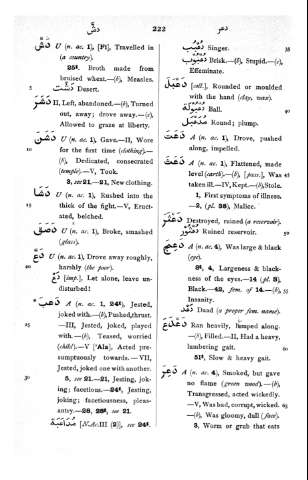 دش
222
دعر
دَشَّ U (n. ac. 1), [P], Travelled in
(a country).
25². Broth made from
bruised wheat.—(b), Measles.
دَشْت Desert.
II, Left, abandoned.—(b), Turned
out, away; drove away.—(c),
Allowed to graze at liberty.
U (n. ac. 1), Gave.—II, Wore
for the first time (clothing).—
(b), Dedicated, consecrated
(temple).—V, Took.
3, see 21.—21, New clothing.
U (n. ac. 1), Rushed into the
thick of the fight.—V, Eruct-
ated, belched.
U (n. ac. 1), Broke, smashed
(glass).
دَعَّ U (n. ac. 1), Drove away roughly,
harshly (the poor).
دَعْ [imp.]. Let alone, leave un-
disturbed!
دَعَبَ A (n. ac. 1, 24ᵏ), Jested,
joked with.—(b), Pushed, thrust.
—III, Jested, joked, played
with.—(b), Teased, worried
(child).—V ['Ala], Acted pre-
sumptuously towards.—VII,
Jested, joked one with another.
5, see 21.—21, Jesting, jok-
ing; facetious.—24ᵏ, Jesting,
joking; facetiousness, pleas-
antry.—26, 28ᵏ, see 21.
مُدَاعَبَة [N. Ac. III (2)], see 24ᵏ.
Singer.
دُعْبُوب Brisk.—(b), Stupid.—(c),
Effeminate.
دَعْبَلَ [coll.], Rounded or moulded
with the hand (clay, wax).
دُعْبُولَة Ball.
مُدَعْبَل Round; plump.
دَعَتَ A (n. ac. 1), Drove, pushed
along, impelled.
دَعَثَ A (n. ac. 1), Flattened, made
level (earth).—(b), [pass.], Was
taken ill.—IV, Kept.—(b), Stole.
1, First symptoms of illness.
—2, (pl. 38), Malice.
دَعْثَرَ Destroyed, ruined (a reservoir).
دُعْثُور Ruined reservoir.
دَعِجَ A (n. ac. 4), Was large & black
(eye).
3ᵏ, 4, Largeness & black-
ness of the eyes.—14 (pl. 3),
Black.—42, fem. of 14.—(b),
Insanity.
دَعْد Daad (a proper fem. name).
دَعْدَعَ Ran heavily, lumped along.
—(b), Filled.—II, Had a heavy,
lumbering gait.
51ᵏ, Slow & heavy gait.
دَعِرَ A (n. ac. 4), Smoked, but gave
no flame (green wood).—(b),
Transgressed, acted wickedly.
—V, Was bad, corrupt, wicked.
—(b), Was gloomy, dull (face).
3, Worm or grub that eats